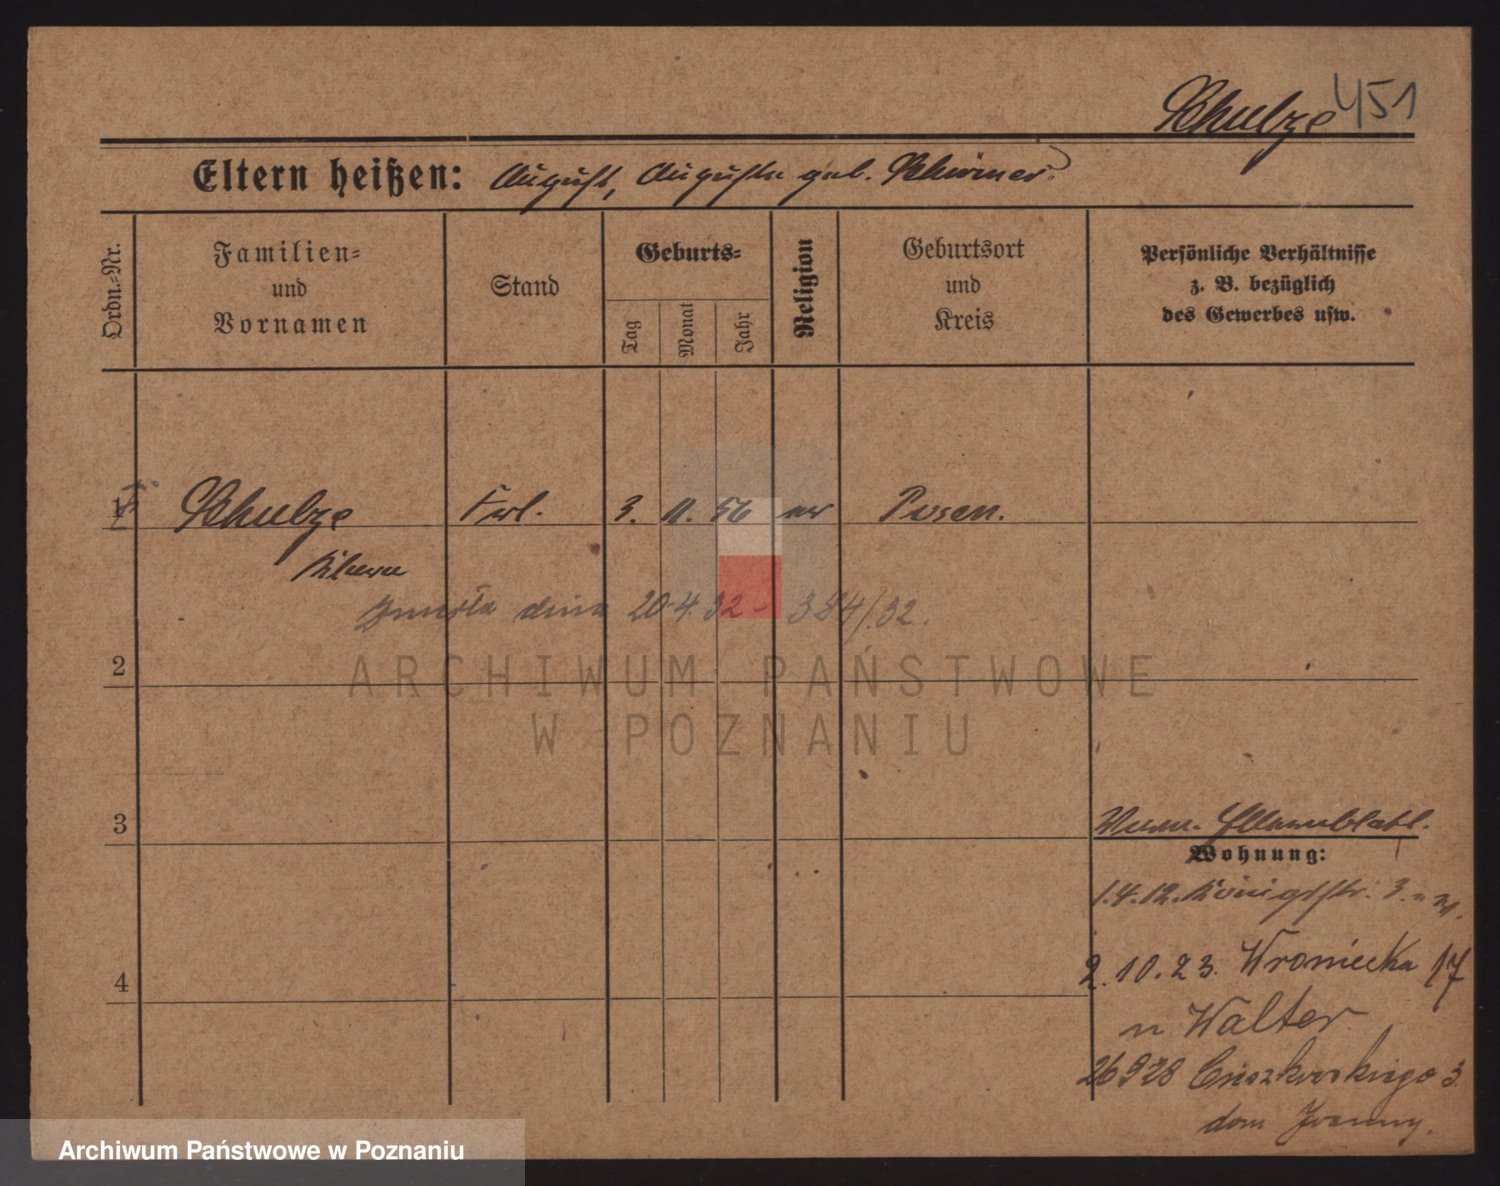 Schulze 451
Eltern heißen: August, Auguste geb.
Ordn.-Nr.
Familien-
und
Vornamen
Stand
Geburts-
Tag
Monat
Jahr
Religion
Geburtsort
und
Kreis
Persönliche Verhältnisse
z. B. bezüglich
des Gewerbes usw.
1 Schulze Frl. 3. 11. 56 ev Posen.
Zmarła dnia 20.4.32 - 384/32.
2
ARCHIWUM PAŃSTWOWE
W POZNANIU
3
Wohnung:
1.4.12. Königstr. 3.
4
2.10.23. Wroniecka 17
u Walter
26 9 28 Cieszkowskiego 3
dom
Archiwum Państwowe w Poznaniu